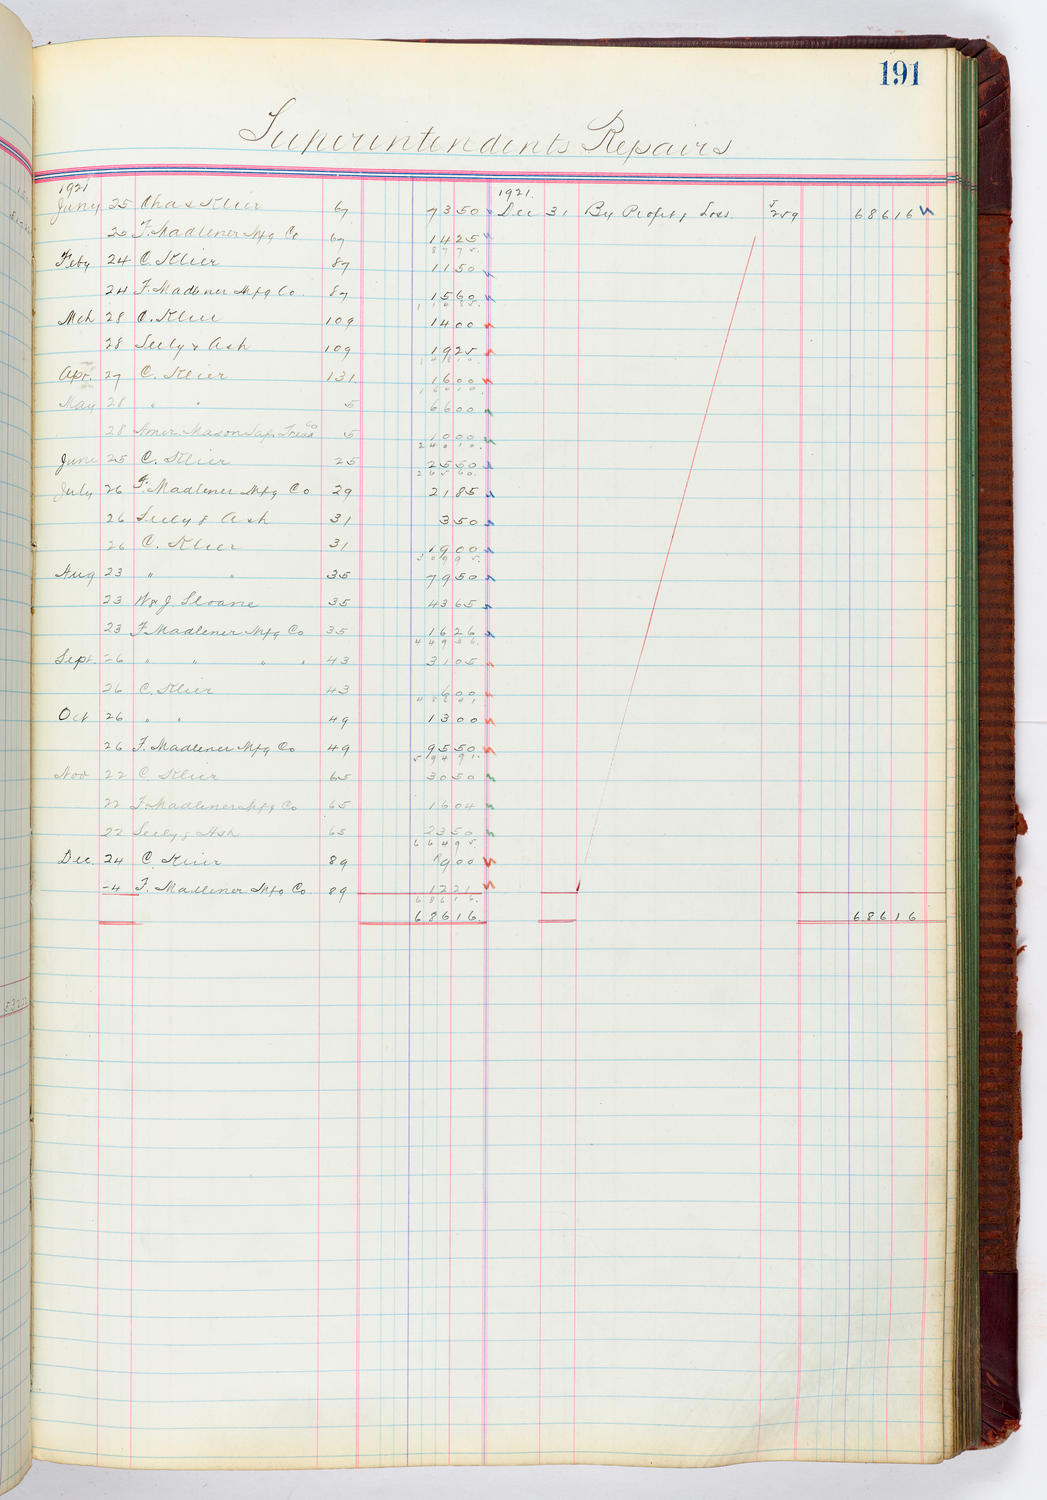 191
Superintendents Repairs
1921 1921.
Jany 25 Chas Klier 67 73 50 Dec 31 By Profit & Loss. 259 686 16
F. Madlener Mfg Co 67 14 25
87 75.
Feby 24 C. Klier 87 11 50
24 F. Madlener Mfg Co. 87 15 60
Mch 28 C. Klier 109 14 00
28 Seely & Ash 109 19 25
Apr. 27 C. Klier 131. 16 00
May 28 " " 5 66 00
28 Amer. Mason Saf. Tread Co 5 10 00
240 10.
June 25 C. Klier 25 25 50
265 60.
July 26 F. Madlener Mfg Co 29 21 85
26 Seely & Ash 31 3 50
26 C. Klier 31 19 00
309 95.
Aug 23 " " 35 79 50
23 W & J. Sloane 35 43 65
23 F. Madlener Mfg Co 35 16 26
449 36.
Sept. 26 " " " " 43 31 05
26 C. Klier 43 6 00
Oct 26 " " 49 13 00
26 F. Madlener Mfg Co 49 95 50
594 91.
Nov 22 C. Klier 65 30 50
22 F. Madlener Mfg Co 65 16 04
22 Seely & Ash 65 23 50
664 95.
Dec. 24 C. Klier 89 9 00
24 F. Madlener Mfg Co. 89 12 21
686 16.
686 16. 686 16